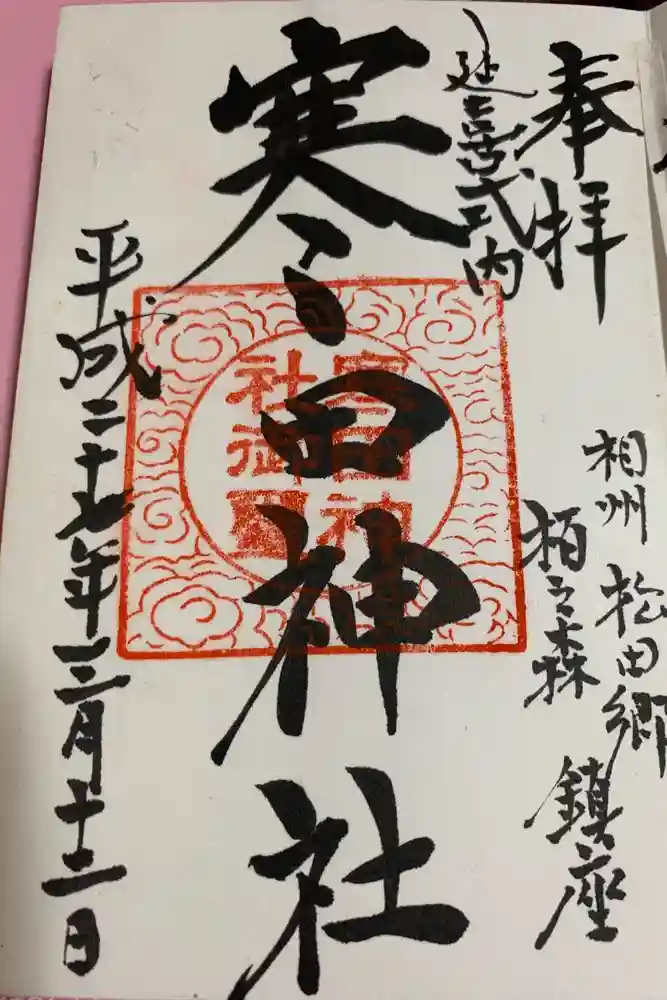 奉拝
相州 松田郷
栢之森
鎮座
延喜式内
寒田神社
寒田神
社御
平成二十七年三月十二日